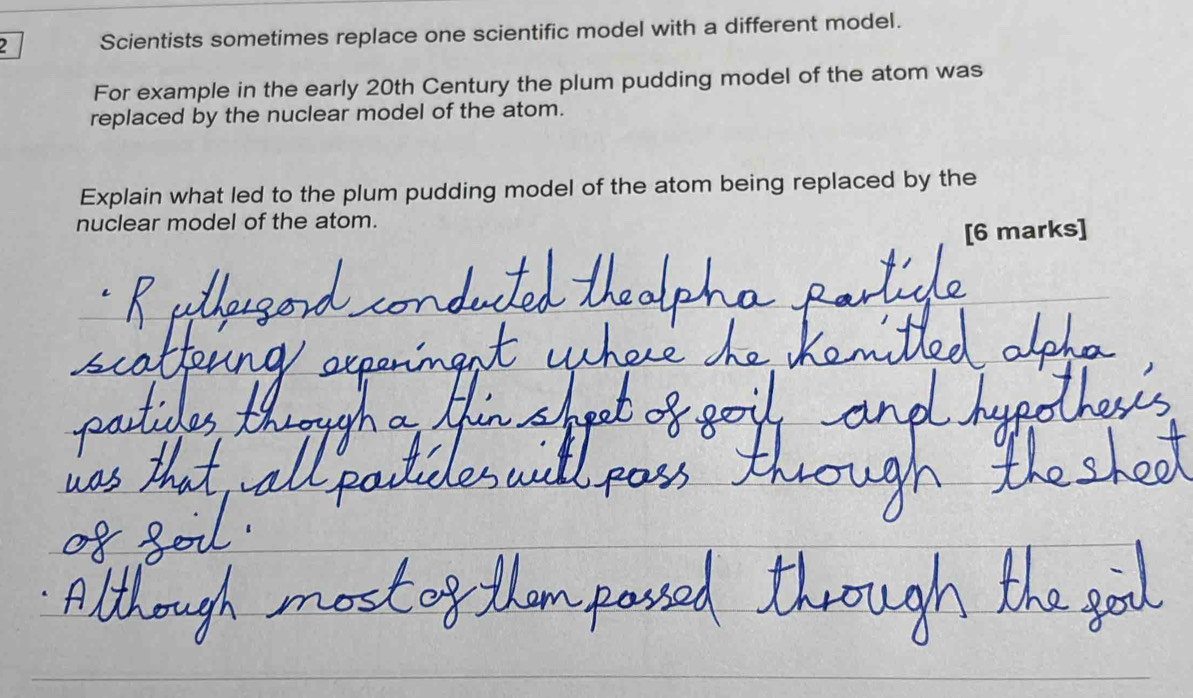 2
Scientists sometimes replace one scientific model with a different model.
For example in the early 20th Century the plum pudding model of the atom was
replaced by the nuclear model of the atom.
Explain what led to the plum pudding model of the atom being replaced by the
nuclear model of the atom.
[6 marks]
• Rutherford conducted the alpha particle
scattering experiment where he emitted alpha
particles through a thin sheet of foil and hypothesis
was that, all particles will pass through the sheet
of foil.
• Although most of them passed through the foil